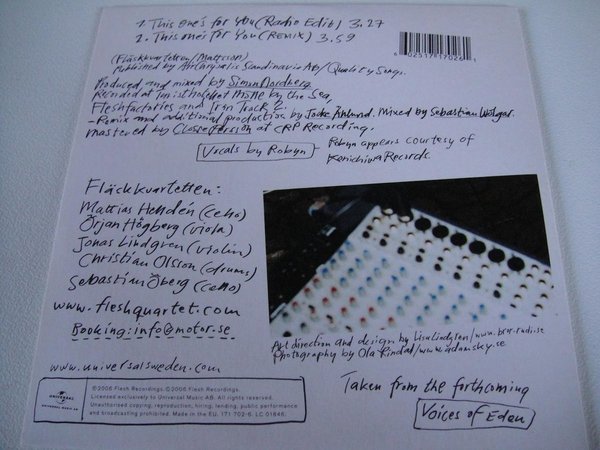 1. This one's for you (Radio Edit) 3.27
2. This one's for you (REMIX) 3.59
6 02517 17026 1
(Fläskkvartetten/Mattsson)
Published by Air Chrysalis Scandinavia AB/Quality Songs.
Produced and mixed by Simon Nordberg
Recorded at the by the Sea,
Fleshfactories and Track 2.
-Remix and additional production by Jocke Åhlund. Mixed by Sebastian
Mastered by Claes Persson at CRP Recording.
Vocals by Robyn - Robyn appears courtesy of
Konichiwa Records
Fläskkvartetten:
Mattias Helldén (cello)
Örjan Högberg (viola)
Jonas Lindgren (violin)
Christian Olsson (drums)
Sebastian Öberg (cello)
www.fleshquartet.com
Booking: info@motor.se
www.universalsweden.com
Art direction and design by Lisa
Photography by Ola Rindal/
UNIVERSAL
©2006 Flesh Recordings. ℗2006 Flesh Recordings.
Licensed exclusively to Universal Music AB. All rights reserved.
Unauthorised copying, reproduction, hiring, lending, public performance
and broadcasting prohibited. Made in the EU. 171 702-6. LC 01846.
Taken from the forthcoming
Voices of Eden